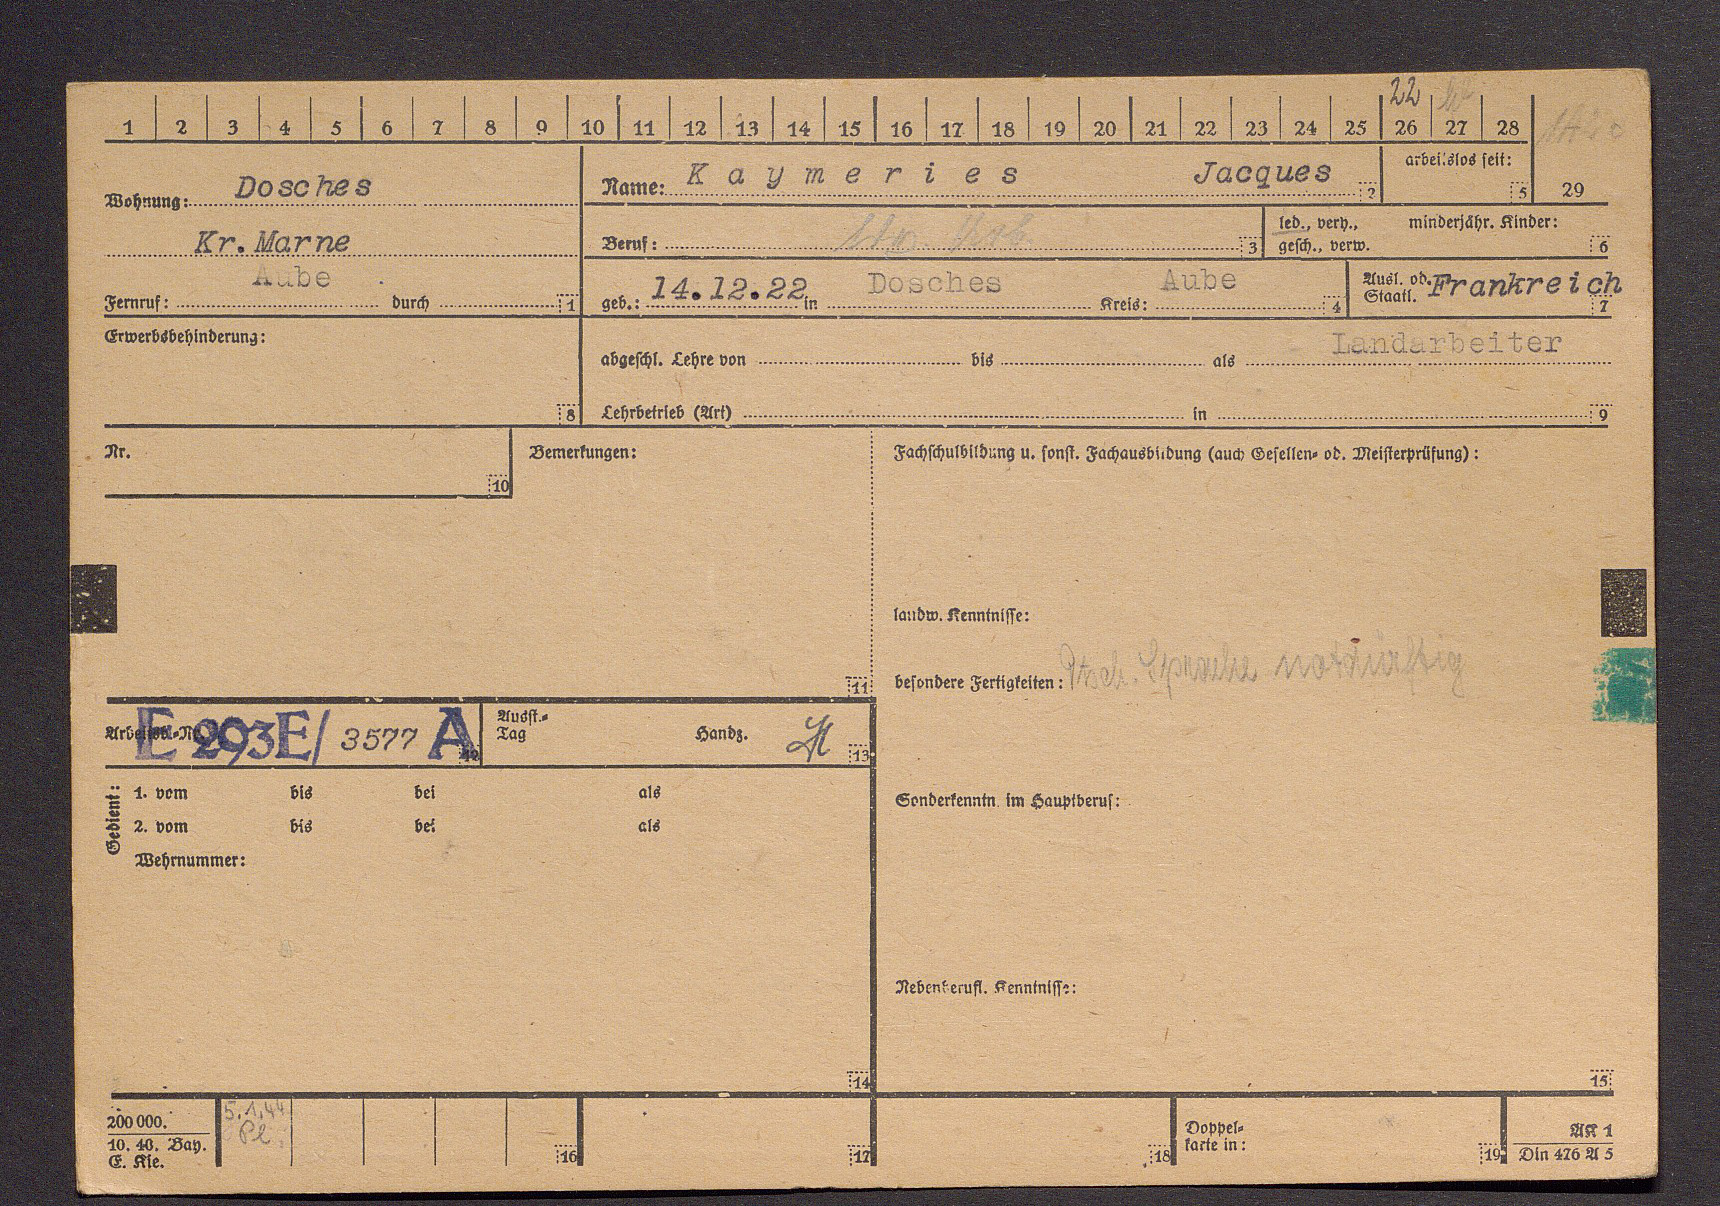 22
1 2 3 4 5 6 7 8 9 10 11 12 13 14 15 16 17 18 19 20 21 22 23 24 25 26 27 28
Wohnung: Dosches
Kr. Marne
Aube
Fernruf: durch 1
Name: Kaymeries Jacques 2
arbeitslos seit: 5
29
Beruf: 3
led., verh., minderjähr. Kinder:
gesch., verw. 6
geb.: 14.12.22 in Dosches Kreis: Aube 4
Ausl. od. Staatl. Frankreich 7
Erwerbsbehinderung: 8
abgeschl. Lehre von bis als Landarbeiter
Lehrbetrieb (Art) in 9
Nr. 10
Bemerkungen: 11
Fachschulbildung u. sonst. Fachausbildung (auch Gesellen- od. Meisterprüfung):
landw. Kenntnisse:
besondere Fertigkeiten: Dtsch. Sprache notdürftig
Arbeitsb.-Nr. E 293E/ 3577 A 12
Ausst.-
Tag Handz. 13
Gedient:
1. vom bis bei als
2. vom bis bei als
Wehrnummer:
14
Sonderkenntn. im Hauptberuf:
Nebenberufl. Kenntnisse:
15
200 000.
10. 40. Bay.
E. Kie.
5.1.44
Pl
16
17
18
Doppel-
karte in: 19
AK 1
Din 476 A 5